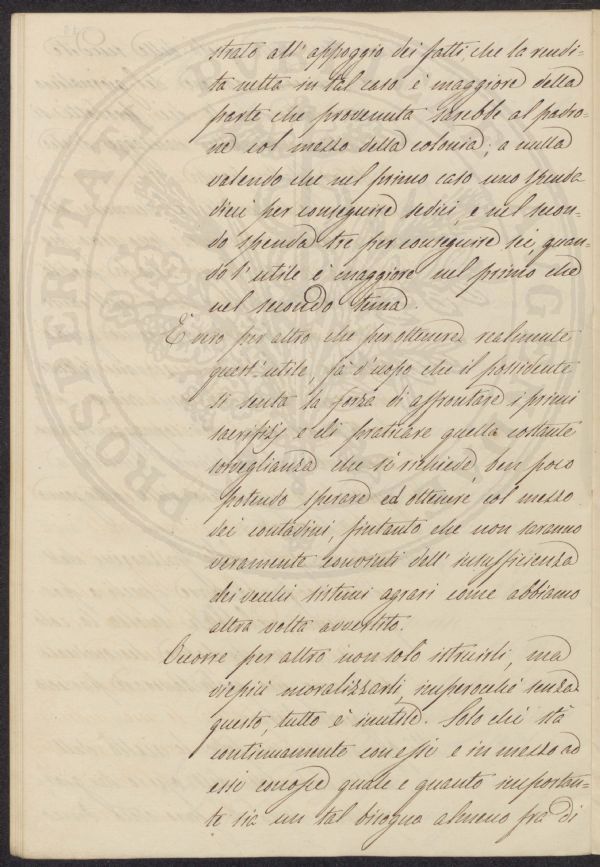 strato all' appoggio dei fatti, che la rendi-
ta netta in tal caso è maggiore della
parte che provenuta sarebbe al padro-
ne col mezzo della colonia; a nulla
valendo che nel primo caso uno spenda
dieci per conseguire sedici, e nel secon-
do spenda tre per conseguire sei, quan-
do l' utile è maggiore nel primo che
nel secondo tema.
È vero per altro che per ottenere realmente
quest' utile, fà d'uopo che il possidente
si senta la forza di affrontare i primi
sacrifizj e di praticare quella costante
sorveglianza che si richiede, ben poco
potendo sperare ed ottenere col mezzo
dei contadini, fintanto che non saranno
veramente convinti dell' insufficienza
dei vecchi sistemi agrari come abbiamo
altra volta avvertito.
Occorre per altro non solo istruirli, ma
viepiù moralizzarli, imperocché senza
questo, tutto è inutile. Solo chi stà
continuamente con essi e in mezzo ad
essi conosce quale e quanto importan-
te sia un tal bisogno almeno fra di
PROSPERITAS